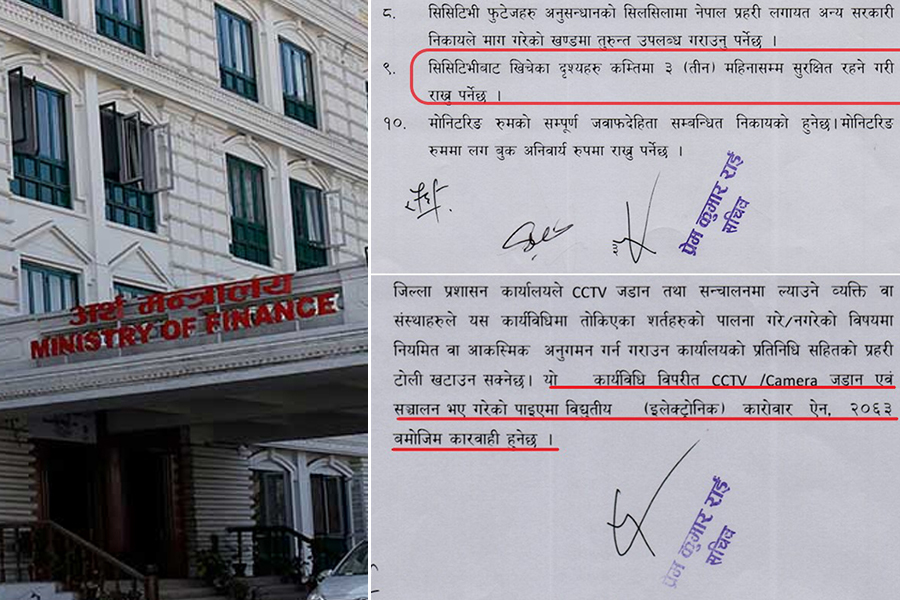 अर्थ मन्त्रालय
MINISTRY OF FINANCE
८. सिसिटिभी फुटेजहरु अनुसन्धानको सिलसिलामा नेपाल प्रहरी लगायत अन्य सरकारी
निकायले माग गरेको खण्डमा तुरुन्त उपलब्ध गराउनु पर्नेछ ।
९. सिसिटिभीबाट खिचेका दृश्यहरु कम्तिमा ३ (तीन) महिनासम्म सुरक्षित रहने गरी
राख्नु पर्नेछ ।
१०. मोनिटरिङ रुमको सम्पूर्ण जवाफदेहिता सम्बन्धित निकायको हुनेछ। मोनिटरिङ
रुममा लग बुक अनिवार्य रुपमा राख्नु पर्नेछ ।
प्रेम कुमार राई
सचिव
जिल्ला प्रशासन कार्यालयले CCTV जडान तथा सन्चालनमा ल्याउने व्यक्ति वा
संस्थाहरुले यस कार्यविधिमा तोकिएका शर्तहरुको पालना गरे/नगरेको विषयमा
नियमित वा आकस्मिक अनुगमन गर्न गराउन कार्यालयको प्रतिनिधि सहितको प्रहरी
टोली खटाउन सक्नेछ। यो कार्यविधि विपरीत CCTV /Camera जडान एवं
सञ्चालन भए गरेको पाइएमा विद्युतीय (इलेक्ट्रोनिक) कारोवार ऐन, २०६३
बमोजिम कारवाही हुनेछ ।
प्रेम कुमार राई
सचिव